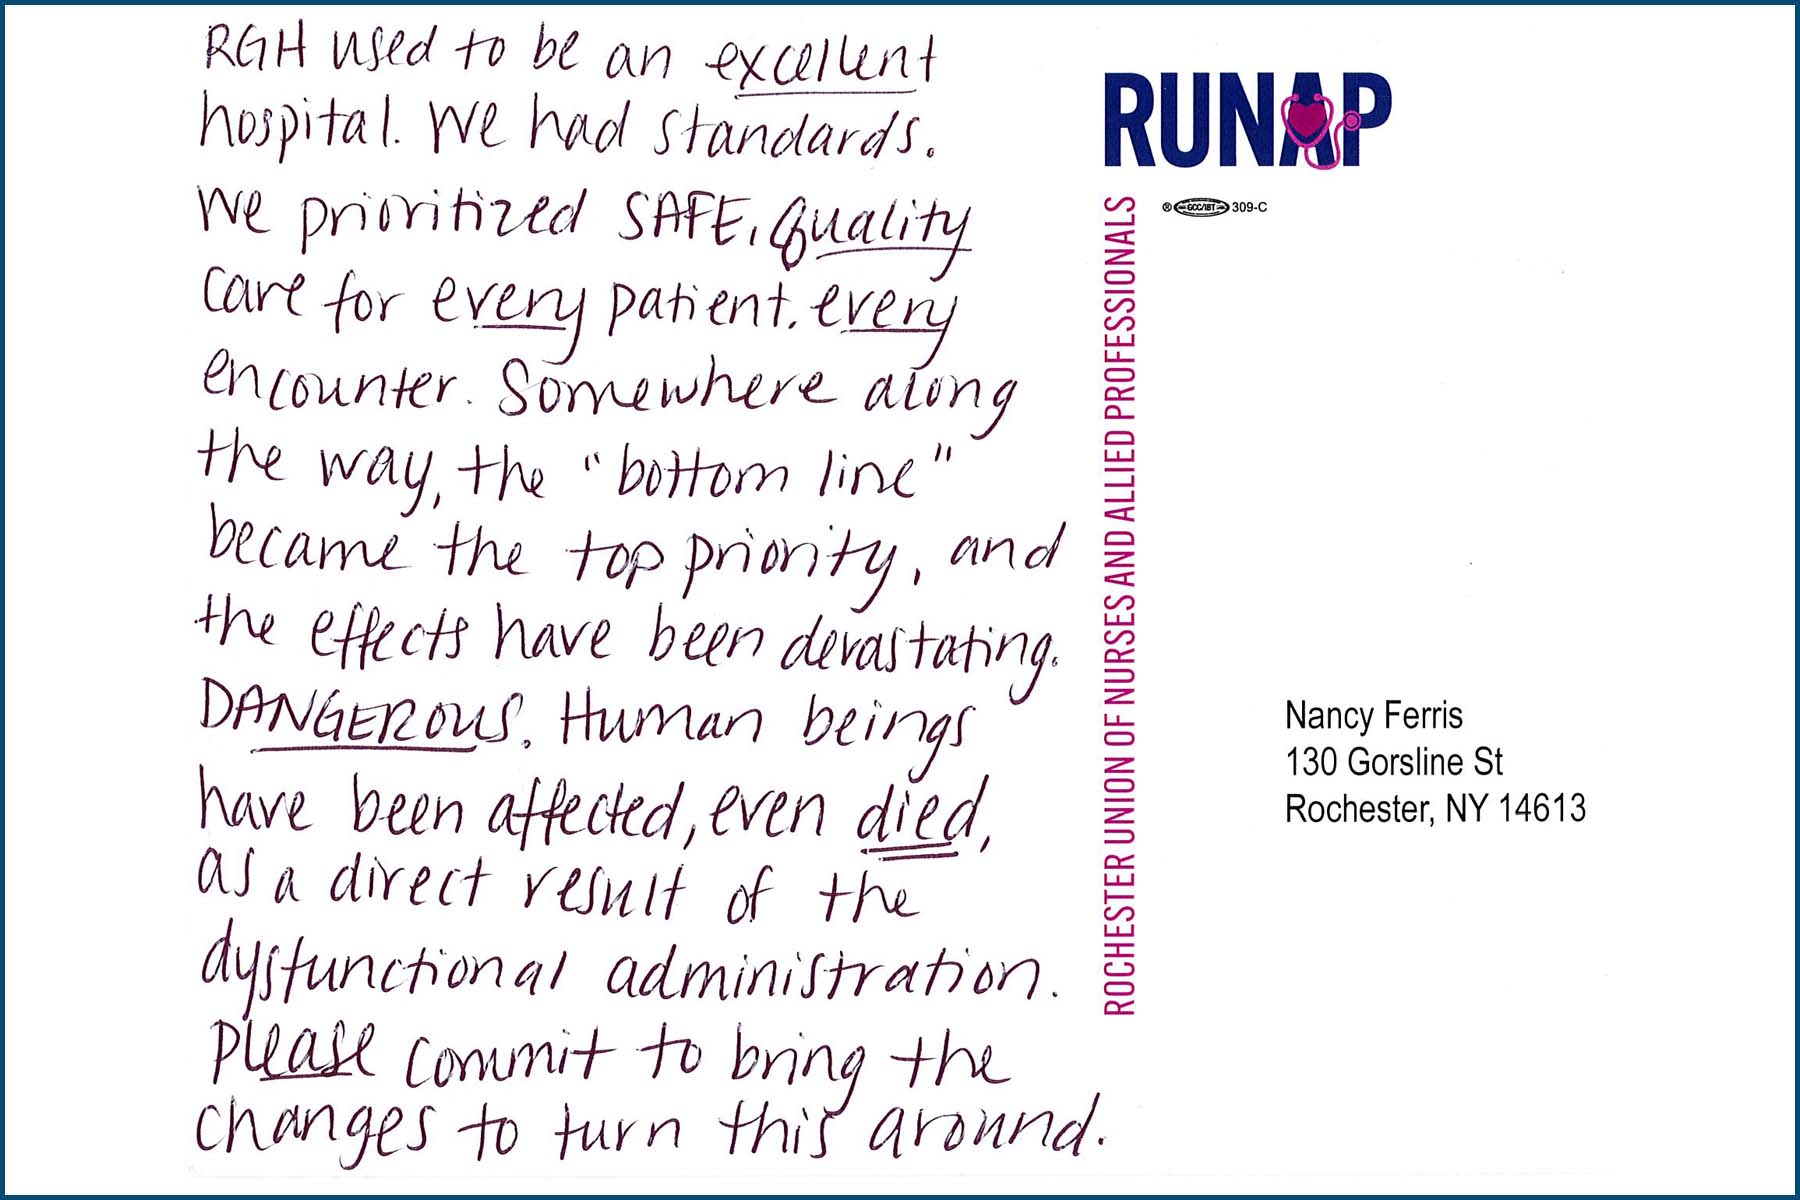 RGH used to be an excellent
hospital. We had standards.
We prioritized SAFE, Quality
care for every patient, every
encounter. Somewhere along
the way, the "bottom line"
became the top priority, and
the effects have been devastating.
DANGEROUS. Human beings
have been affected, even died,
as a direct result of the
dysfunctional administration.
Please commit to bring the
changes to turn this around.
RUNAP
® GCC/IBT 309-C
ROCHESTER UNION OF NURSES AND ALLIED PROFESSIONALS
Nancy Ferris
130 Gorsline St
Rochester, NY 14613